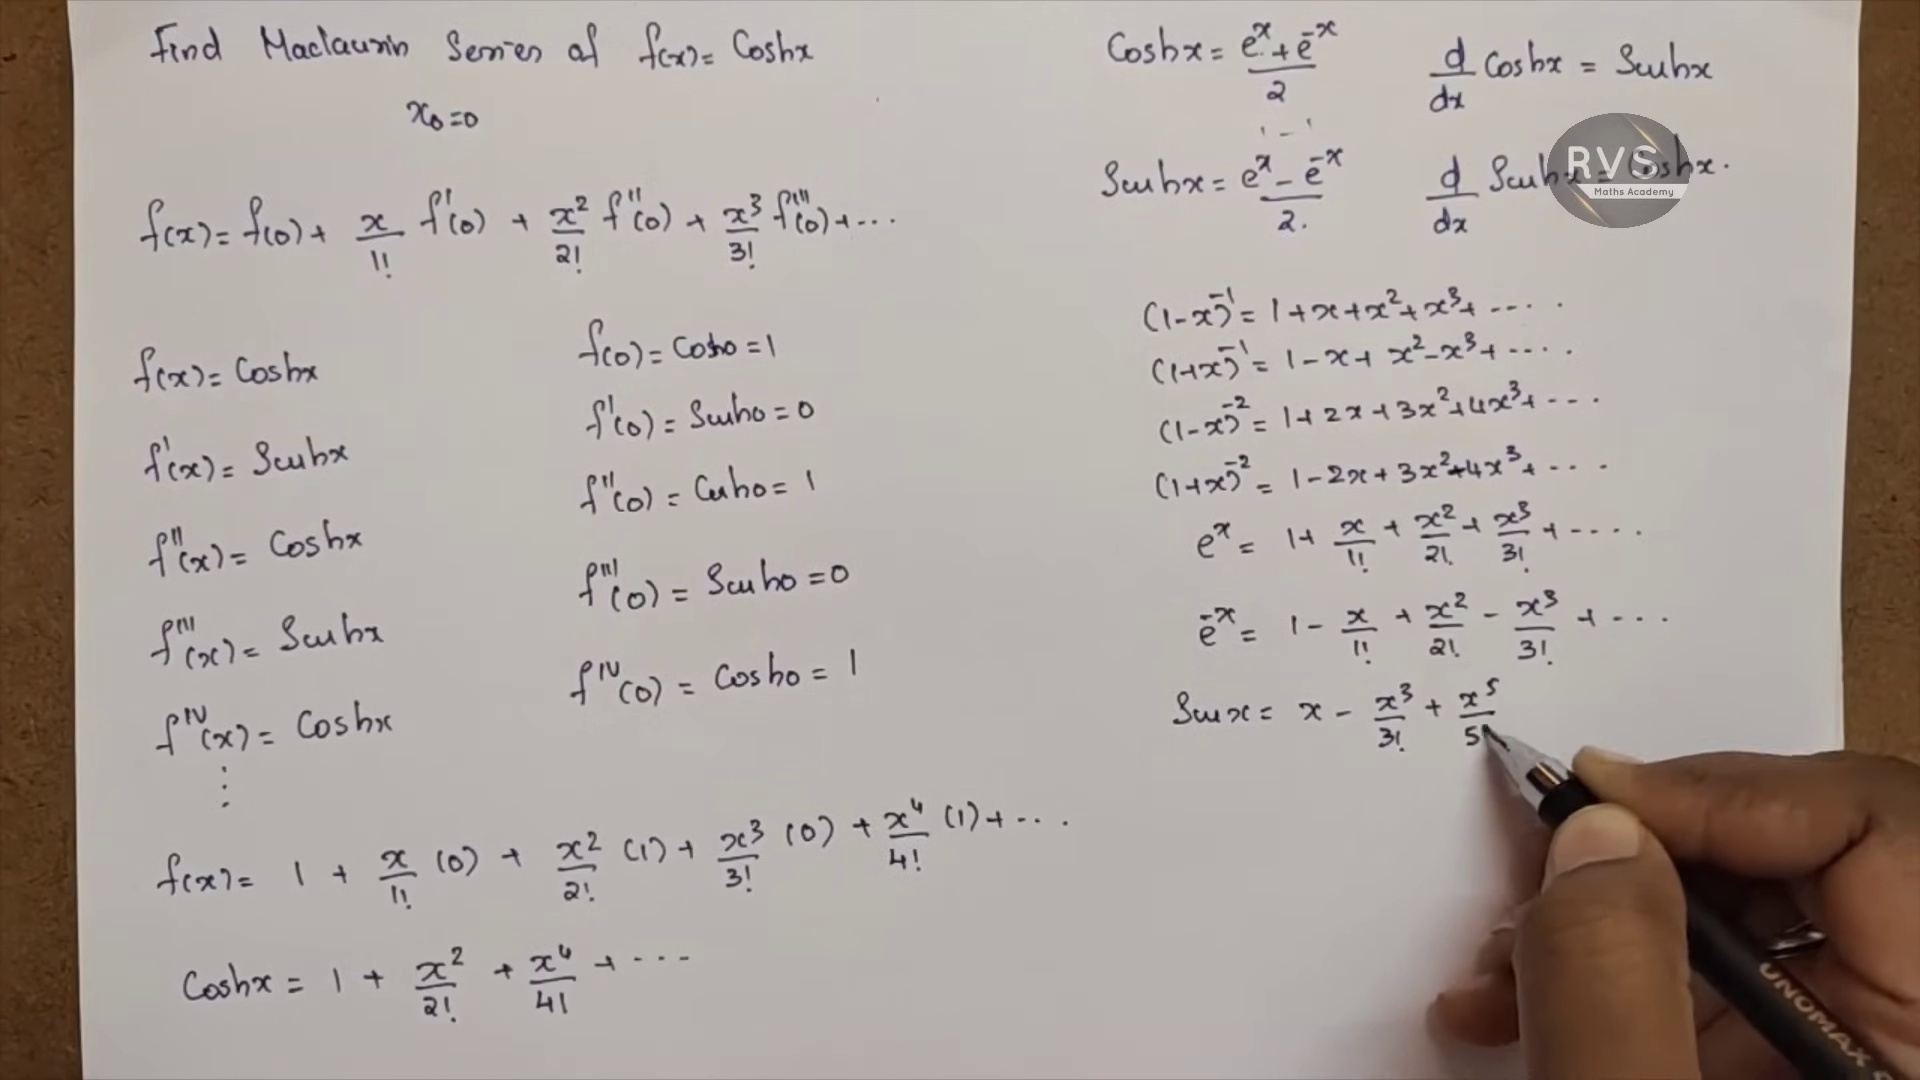 Find Maclaurin Series of f(x) = Coshx
x₀ = 0
f(x) = f(0) + x/1! f'(0) + x²/2! f''(0) + x³/3! f'''(0) + ...
f(x) = Coshx
f'(x) = Sinhx
f''(x) = Coshx
f'''(x) = Sinhx
f^IV(x) = Coshx
⋮
f(0) = Cosh0 = 1
f'(0) = Sinh0 = 0
f''(0) = Cosh0 = 1
f'''(0) = Sinh0 = 0
f^IV(0) = Cosh0 = 1
f(x) = 1 + x/1! (0) + x²/2! (1) + x³/3! (0) + x⁴/4! (1) + ...
Coshx = 1 + x²/2! + x⁴/4! + ...
Coshx = (e^x + e^-x)/2
d/dx Coshx = Sinhx
Sinhx = (e^x - e^-x)/2.
d/dx Sinhx = Coshx.
RVS
Maths Academy
(1-x)^-1 = 1 + x + x² + x³ + ....
(1+x)^-1 = 1 - x + x² - x³ + ....
(1-x)^-2 = 1 + 2x + 3x² + 4x³ + ...
(1+x)^-2 = 1 - 2x + 3x² - 4x³ + ...
e^x = 1 + x/1! + x²/2! + x³/3! + ....
e^-x = 1 - x/1! + x²/2! - x³/3! + ...
Sinx = x - x³/3! + x⁵/5!
UNOMAX